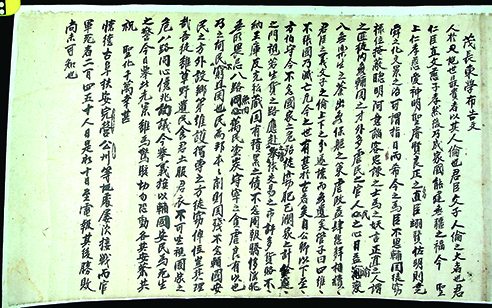 茂長東學布告文
人於世最貴者以其人倫也君臣父子人倫之大者也君
仁臣直父慈子孝然後乃成家國能逮無疆之福今 聖
上仁孝慈愛神明聖睿賢良正直之臣翊贊佐明則堯
舜之化文景之治可指日而希今之爲臣不思輔國徒竊
祿位掩蔽聰明阿意諂容忠諫之士謂之妖言正直之人謂
之匪徒內無輔國之才外多虐民之官人民之心日益渝變
入無樂生之業出無保軀之策虐政日肆惡聲相續
君臣之義父子之倫上下之分逆壞而無遺矣管子曰四維
不張國乃滅亡凡今之世有甚於古者矣自公卿以下至
方伯守令不念國家之危殆徒竊肥己潤家之計銓選
之門視若生貨之路應試之場爲交易之市許多貨賂不
納王庫反充私藏國有積累之債不念圖報驕侈淫昵
無所畏忌八路魚肉萬民塗炭守宰之貪虐良有以也
乃之何民不窮且困也民爲邦本本削則國殘不念輔國安
民之方外設鄕第惟謀獨全之方徒竊俸位豈其理
哉吾徒雖草野遺民食君土服君衣不可坐視國家之
危八路同心億兆詢議今擧義旗以輔國安民爲死生
之誓今日擧此光景雖爲驚駭切勿恐動各其安業共
祝 聖化千萬幸甚
公州等地
軍死者二百四五十人
尙不可知也